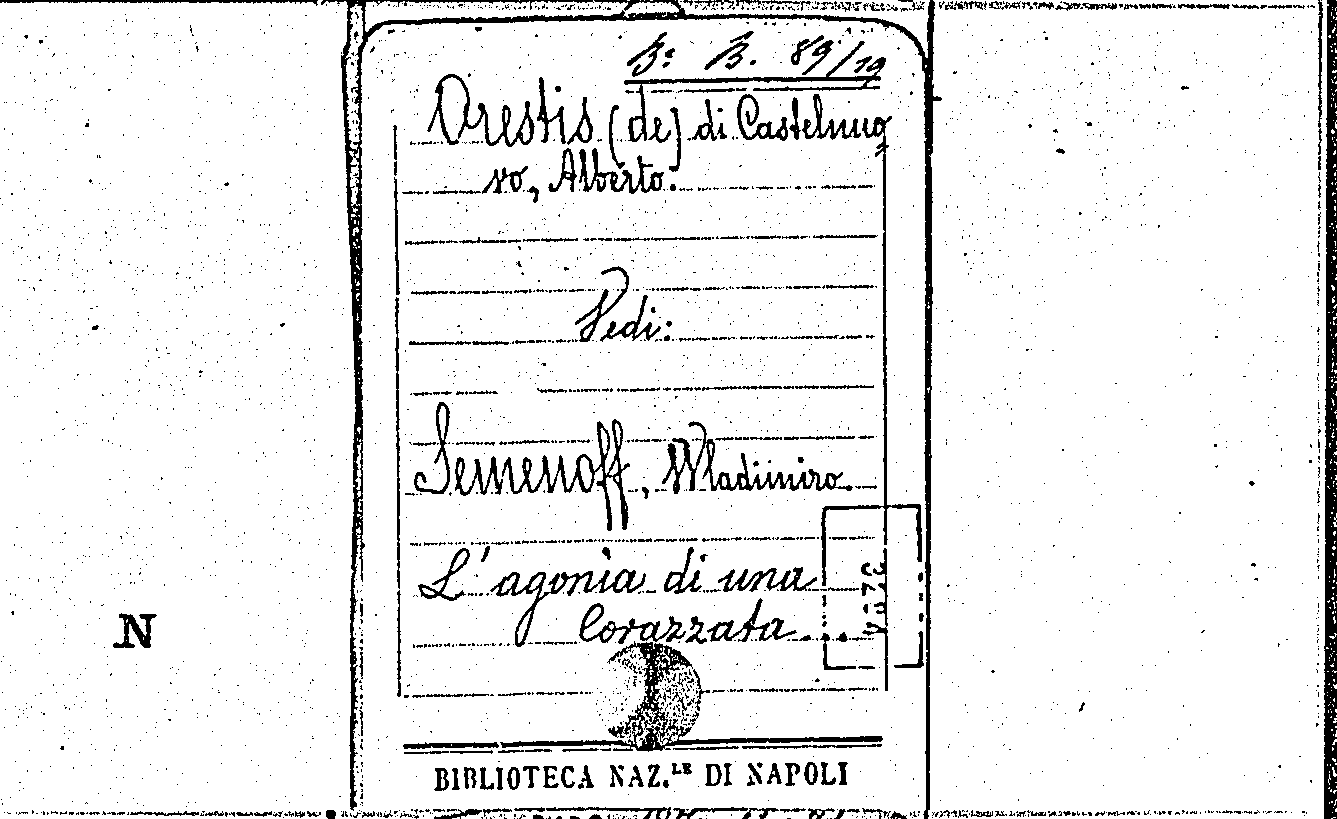 B: B. 89/19
Orestis (de) di Castelnuo=
vo, Alberto.
Vedi:
Semenoff, Wladimiro.
L'agonia di una
Corazzata...
N
BIBLIOTECA NAZ.LE DI NAPOLI